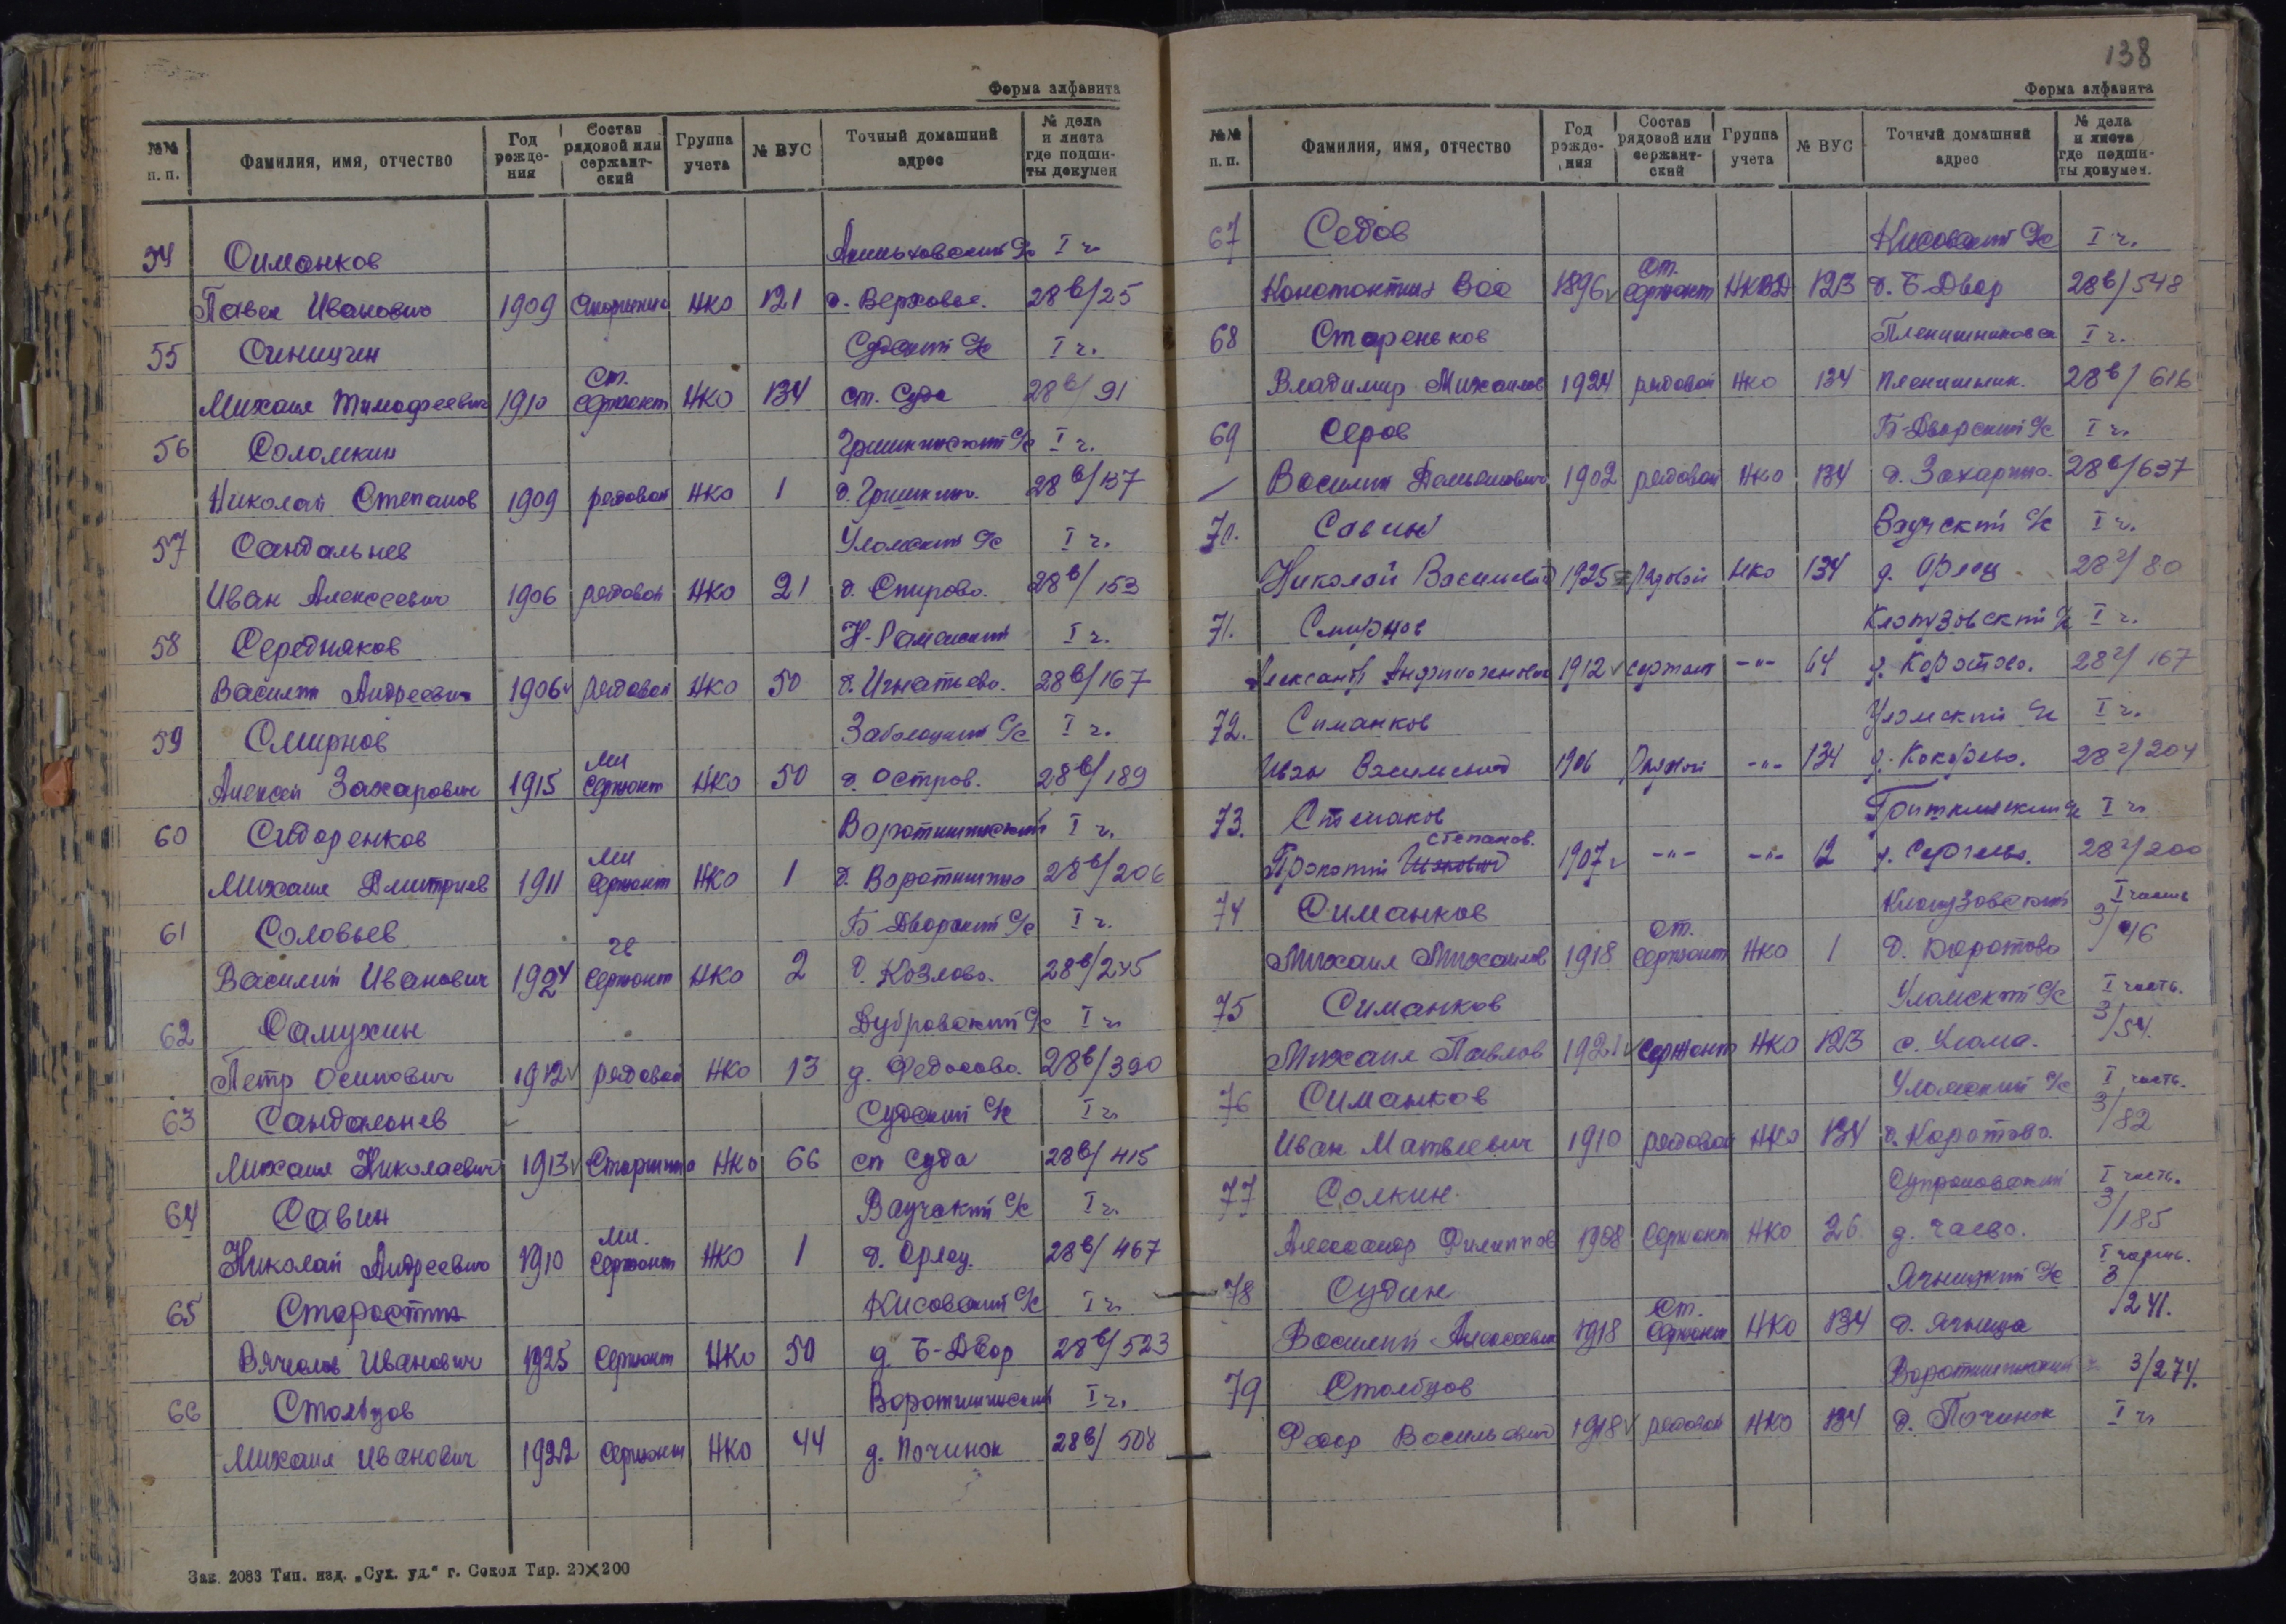 Форма алфавита
№№ п. п. | Фамилия, имя, отчество | Год рождения | Состав рядовой или сержантский | Группа учета | № ВУС | Точный домашний адрес | № дела и листа где подшиты докумен
54 Симанков I ч
Павел Иванович 1909 НКО 121 д. Верховье. 28в/25
55 Синицин Судский с/с I ч.
Михаил Тимофеевич 1910 Ст. Сержант НКО 134 ст. Суда 28в/91
56 Соломкин I ч.
Николай Степанов 1909 рядовой НКО 1 28в/137
57 Сандальнев Уломский с/с I ч.
Иван Алексеевич 1906 рядовой НКО 21 д. Спирово. 28в/153
58 Середняков Н-Раменский I ч.
Василий Андреевич 1906 рядовой НКО 50 д. Игнатьево. 28в/167
59 Смирнов I ч.
Алексей Захарович 1915 Мл Сержант НКО 50 д. Остров. 28в/189
60 Сидоренков Воротишинский I ч.
Михаил Дмитриев 1911 Мл Сержант НКО 1 28в/206
61 Соловьев Б-Дворский с/с I ч.
Василий Иванович 1924 Сержант НКО 2 д. Козлово. 28в/245
62 Самухин Дубровский с/с I ч
Петр Осипович 1912 рядовой НКО 13 д. Федосово. 28в/390
63 Судский с/с I ч
Михаил Николаевич 1913 Старшина НКО 66 Суда 28в/415
64 Савин Ваучский с/с I ч.
Николай Андреевич 1910 Мл. Сержант НКО 1 28в/467
65 Старостин I ч.
Вячеслав Иванович 1925 Сержант НКО 50 д. Б-Двор 28в/523
66 Столбцов Воротишинский I ч.
Михаил Иванович 1922 Сержант НКО 44 д. Починок 28в/508
Зак. 2083 Тип. изд. „Сух. уд.“ г. Сокол Тир. 20×200
138
Форма алфавита
№№ п. п. | Фамилия, имя, отчество | Год рождения | Состав рядовой или сержантский | Группа учета | № ВУС | Точный домашний адрес | № дела и листа где подшиты докумен.
67 Седов I ч.
Константин Вас 1896 Ст. Сержант НКВД 123 д. Б-Двор 28в/548
68 Стареньков I ч.
Владимир Михайлов 1924 рядовой НКО 134 28в/616
69 Серов Б-Дворский с/с I ч.
Василий 1902 рядовой НКО 134 д. Захарино. 28в/637
70. Савин Ваучский с/с I ч.
Николай Васильевич 1925 рядовой НКО 134 28г/80
71. Смирнов Клопузовский с/с I ч.
1912 сержант -"- 64 д. Коротово. 28г/167
72. Симанков Уломский с/с I ч.
Иван Васильевич 1906 Рядовой -"- 134 28г/204
73. I ч
Прокопий Степанов. 1907 -"- -"- 12 28г/200
74 Симанков Клопузовский I часть
Михаил Михайлов 1918 Ст. Сержант НКО 1 д. Коротово 3/46
75 Симанков Уломский с/с I часть.
Михаил Павлов 1921 Сержант НКО 123 с. Улома. 3/54.
76 Симанков Уломский с/с I часть.
Иван Матвеевич 1910 рядовой НКО 134 д. Коротово. 3/82
77 Солкин I часть.
Александр Филиппов 1908 Сержант НКО 26 д. Чаево. 3/185
78 Судин Ягницкий с/с I часть.
Василий Алексеевич 1918 Ст. Сержант НКО 134 д. Ягница 3/241.
79 Столбцов Воротишинский 3/274.
Федор Васильевич 1918 рядовой НКО 134 д. Починок I ч